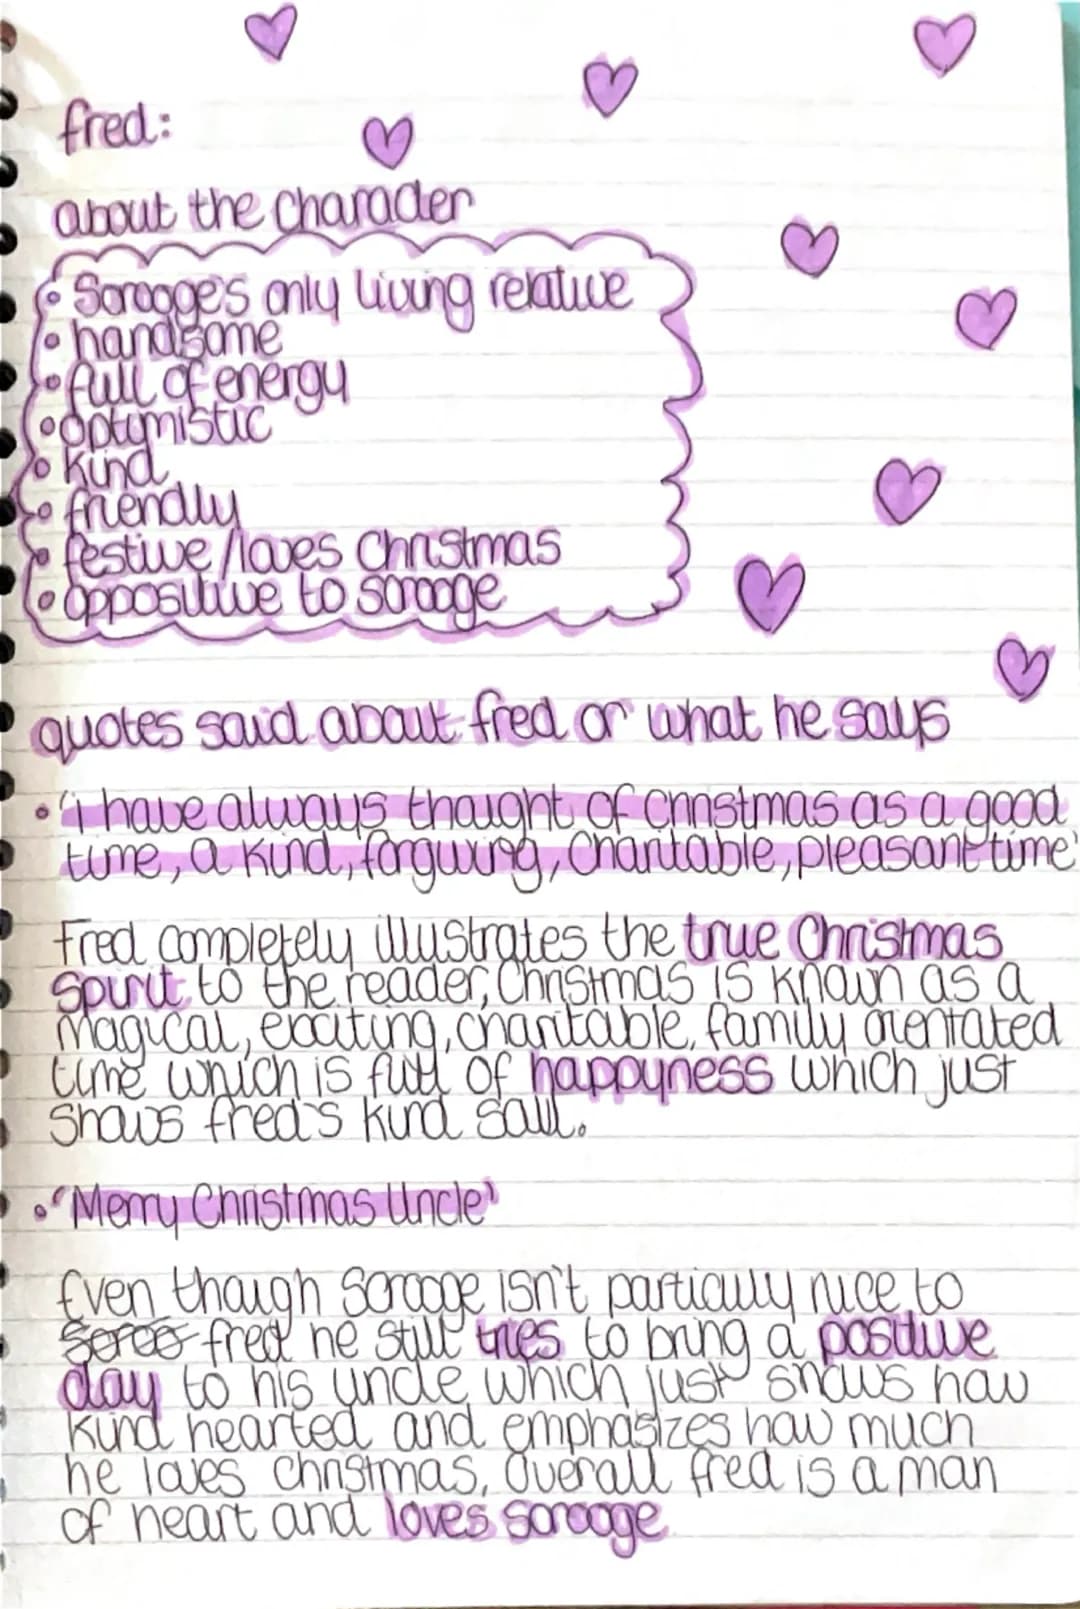 fred:
about the character
• Scrooge's only living relative
• handsome
• full of energy
• optymistic
• kind
• friendly
• festive/loves Christmas
• oppositive to scrooge
quotes said about fred or what he says
• 'i have always thought of christmas as a good
time, a kind, forgiving, charitable, pleasant time'
Fred completely illustrates the true Christmas
Spirit to the reader, Christmas is known as a
magical, exciting, charitable, family orientated
time which is full of happyness which just
shows fred's kind soul.
• 'Merry Christmas Uncle'
Even though Scrooge isn't particuly nice to
fred he still tries to bring a positive
day to his uncle which just shows how
kind hearted and emphasizes how much
he loves christmas. Overall fred is a man
of heart and loves scrooge